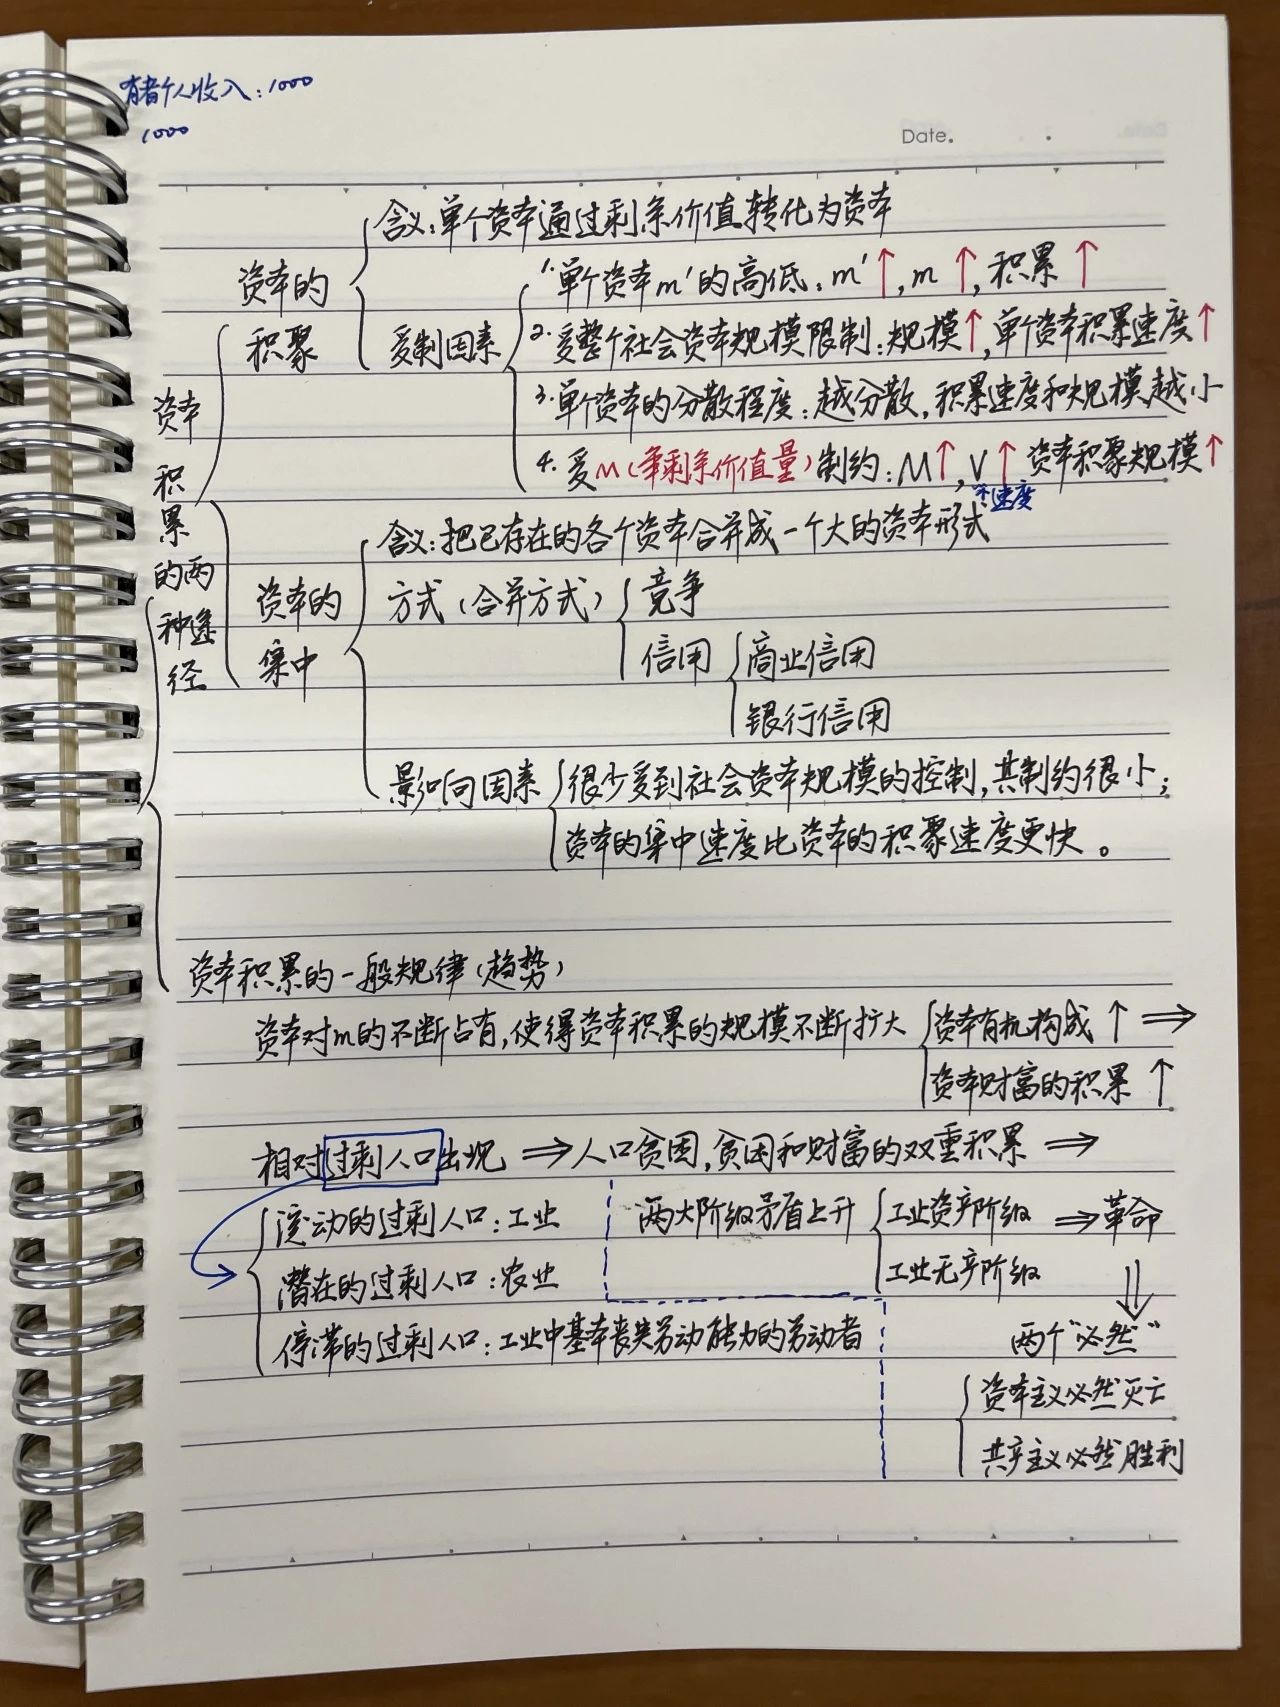 有者个人收入：1000
1000
Date.
含义：单个资本通过剩余价值转化为资本
资本的
积聚
受制因素
1.单个资本m'的高低：m'↑，m↑，积累↑
2.受整个社会资本规模限制：规模↑，单个资本积累速度↑
3.单个资本的分散程度：越分散，积累速度和规模越小
4.受M（年剩余价值量）制约：M↑，V↑ 资本积聚规模↑
速度
资本
积
累
的两
种途
经
含义：把已存在的各个资本合并成一个大的资本形式
资本的
集中
方式（合并方式）
竞争
信用
商业信用
银行信用
影响因素
很少受到社会资本规模的控制，其制约很小；
资本的集中速度比资本的积聚速度更快。
资本积累的一般规律（趋势）
资本对m的不断占有，使得资本积累的规模不断扩大
资本有机构成↑ ⇒
资本财富的积累↑
相对过剩人口出现 ⇒ 人口贫困，贫困和财富的双重积累 ⇒
流动的过剩人口：工业
潜在的过剩人口：农业
停滞的过剩人口：工业中基本丧失劳动能力的劳动者
两大阶级矛盾上升
工业资产阶级 ⇒ 革命
工业无产阶级
⇓
两个"必然"
资本主义必然灭亡
共产主义必然胜利